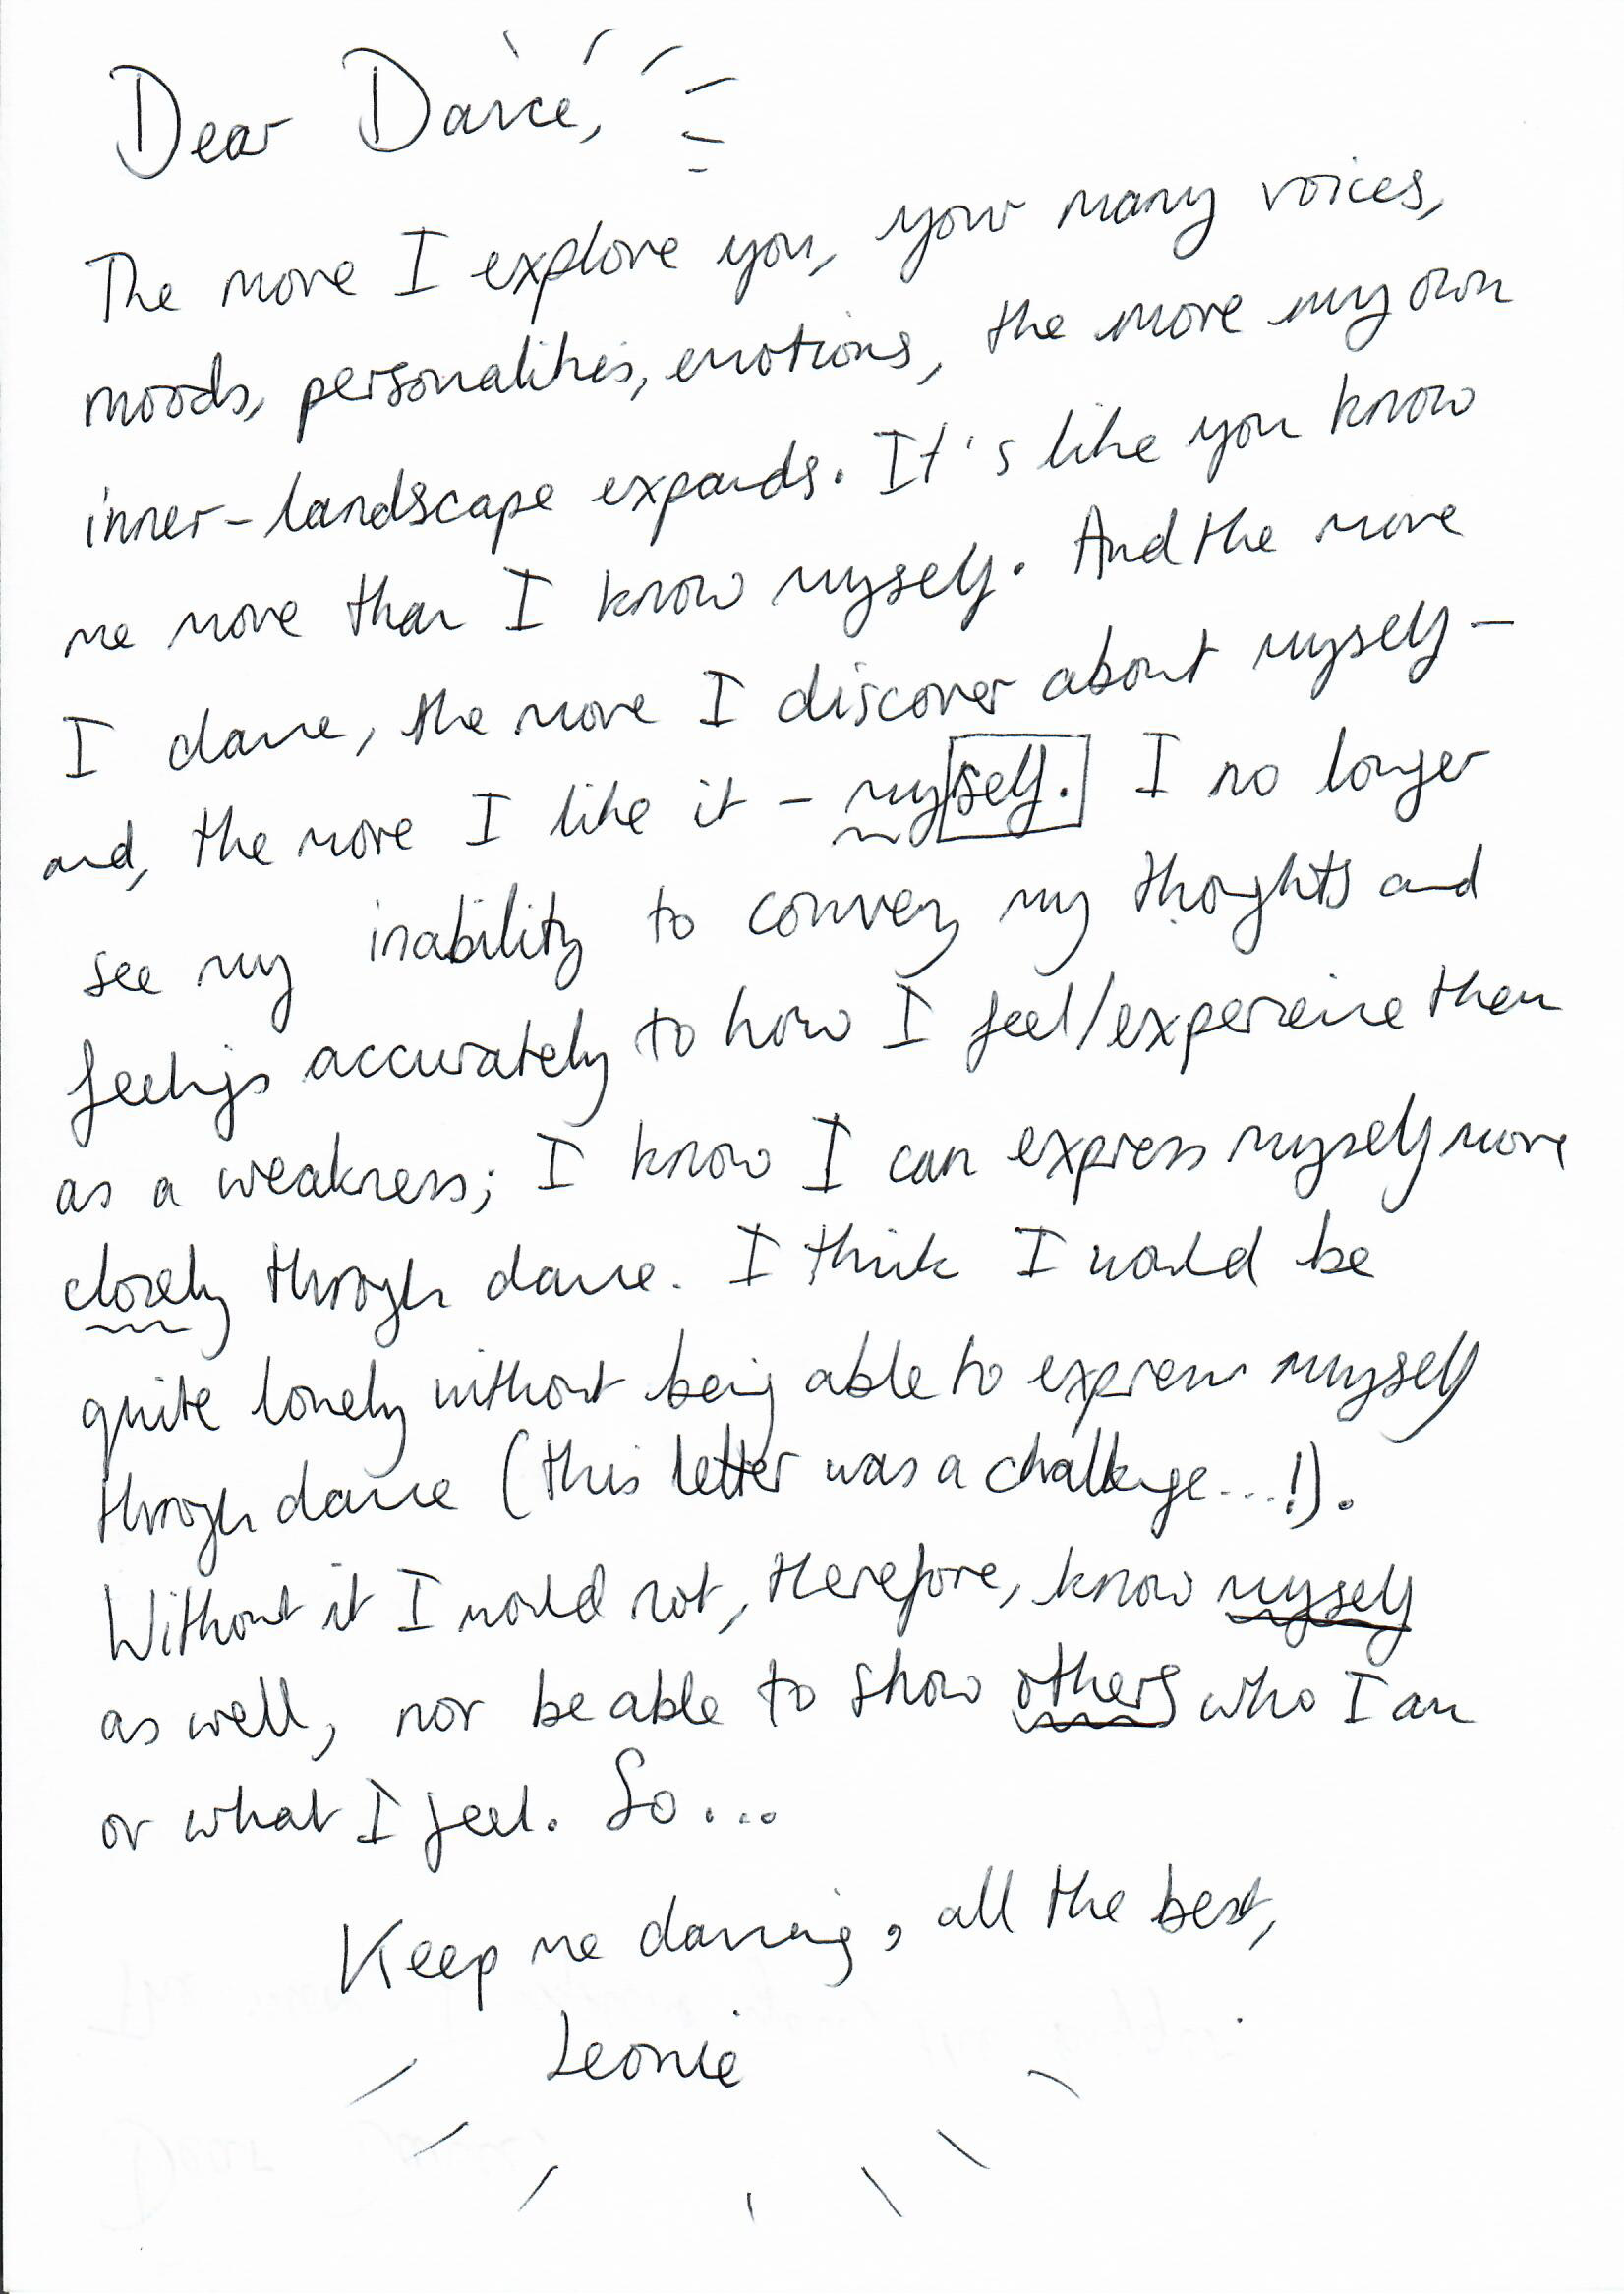 Dear Dance,
The more I explore you, your many voices,
moods, personalities, emotions, the more my own
inner-landscape expands. It's like you know
me more than I know myself. And the more
I dance, the more I discover about myself -
and, the more I like it - myself. I no longer
see my inability to convey my thoughts and
feelings accurately to how I feel/experience them
as a weakness; I know I can express myself more
closely through dance. I think I would be
quite lonely without being able to express myself
through dance (this letter was a challenge...!).
Without it I would not, therefore, know myself
as well, nor be able to show others who I am
or what I feel. So...
Keep me dancing, all the best,
Leonie